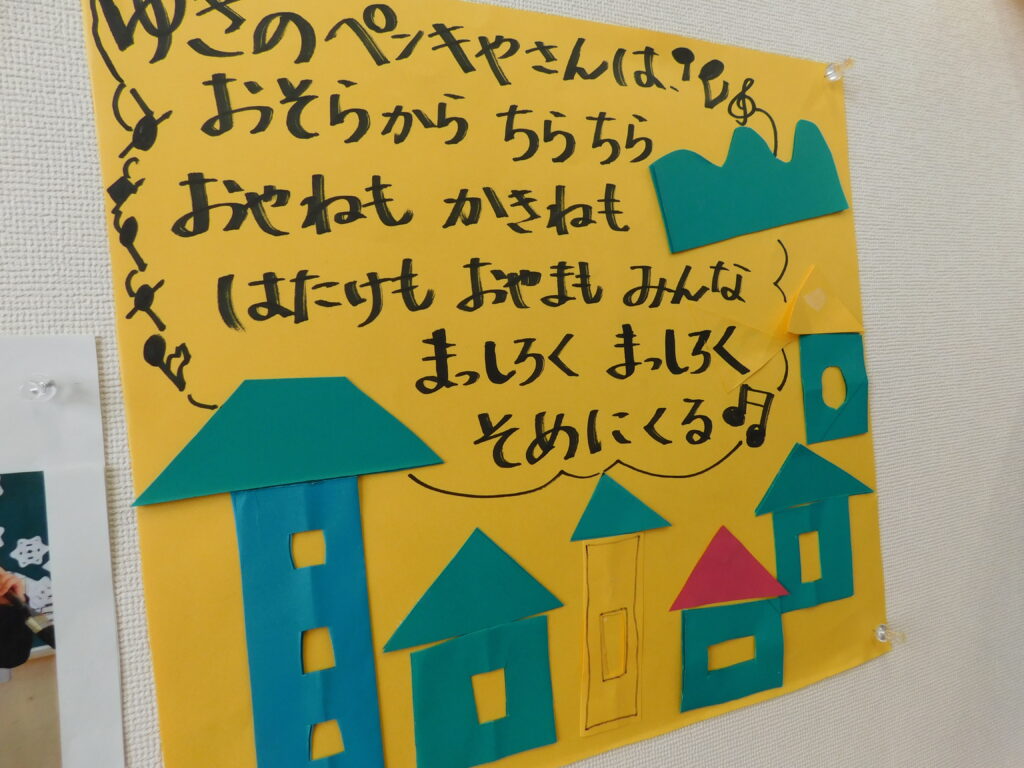 ゆきのペンキやさんは
おそらから ちらちら
おやねも かきねも
はたけも おやまも みんな
まっしろく まっしろく
そめにくる